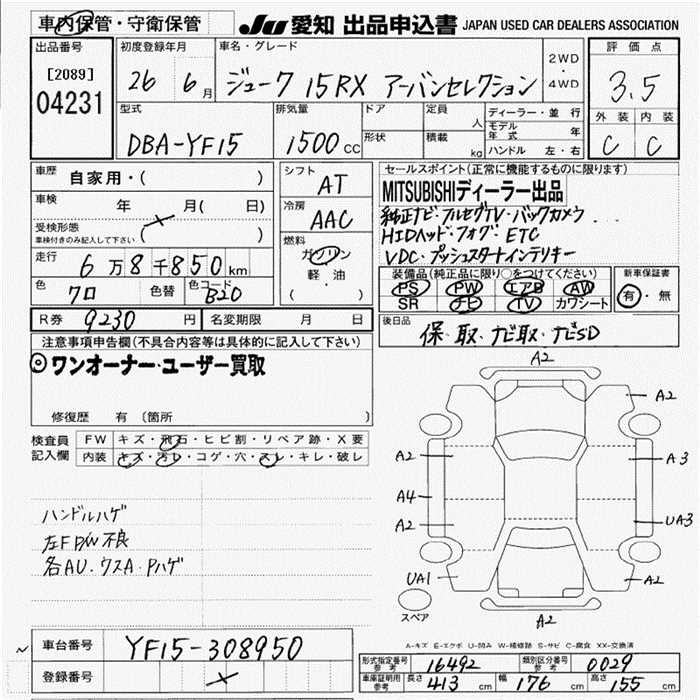 車内保管・守衛保管 JU 愛知 出品申込書 JAPAN USED CAR DEALERS ASSOCIATION
出品番号 初度登録年月 車名・グレード 2WD・4WD 評価点
[2089] 04231 26 6月 ジューク 15RX アーバンセレクション 3.5
型式 排気量 ドア 定員 人 ディーラー・並行 外装 内装
DBA-YF15 1500 CC 形状 積載 kg モデル年式 年 C C
ハンドル 左・右
車歴 自家用・( ) シフト AT セールスポイント(正常に機能するものに限ります)
MITSUBISHIディーラー出品
車検 年 月( 日) 冷房 AAC 純正ナビ・フルセグTV・バックカメラ
受検形態 ( ) HIDヘッド・フォグ・ETC
車検付きのみ記入して下さい
VDC・プッシュスタートインテリキー
走行 6万8千850km 燃料 ガソリン 軽油 ( )
装備品(純正品に限り○をつけてください) 新車保証書
PS PW エアB AW 有・無
SR ナビ TV カワシート
色 クロ 色替 色コード B20
R券 9230 円 名変期限 月 日 後日品 保・取・ナビ取・ナビSD
注意事項申告欄(不具合内容等は具体的に記入して下さい)
◎ワンオーナー・ユーザー買取
修復歴 有 〔箇所 〕
検査員記入欄 FW キズ・飛石・ヒビ割・リペア跡・X要
内装 キズ・汚レ・コゲ・穴・スレ・キレ・破レ
ハンドルハゲ
左FP/W不良
各AU・ウスA・Pハゲ
A2
A2
A2 A3
A4
A2 UA3
UA1 A2
スペア
A2
A-キズ E-エクボ U-凹み W-補修跡 S-サビ C-腐食 XX-交換済
車台番号 YF15-308950
登録番号
形式指定番号 参考 16492 類別区分番号 参考 0029
車庫証明用 参考 長さ 413 cm 幅 176 cm 高さ 155 cm